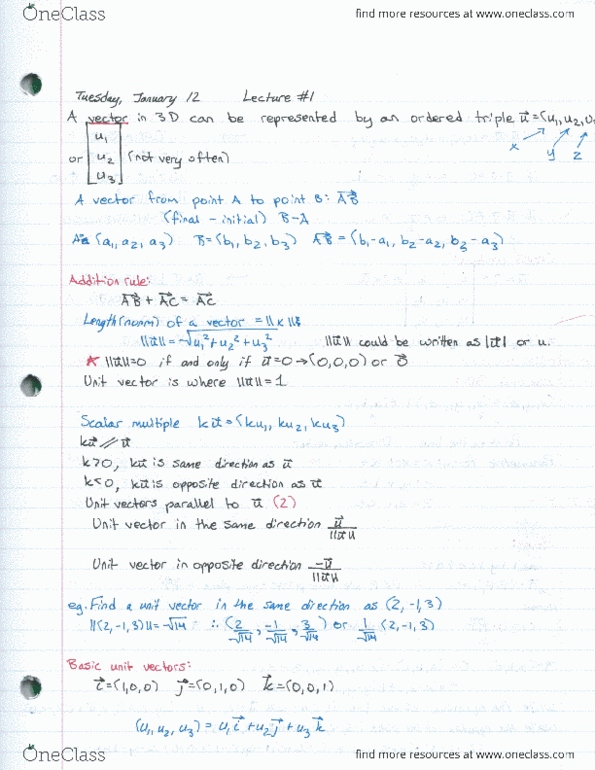 OneClass find more resources at www.oneclass.com
Tuesday, January 12 Lecture #1
A vector in 3D can be represented by an ordered triple u⃗=(u₁,u₂,u
x y z
or [u₁ u₂ u₃] (not very often)
A vector from point A to point B: AB⃗
(final - initial) B-A
A= (a₁, a₂, a₃) B=(b₁, b₂, b₃) AB⃗ = (b₁-a₁, b₂-a₂, b₃-a₃)
Addition rule:
AB⃗ + AC⃗ = AC⃗
Length (norm) of a vector =
||u⃗||=√u₁²+u₂²+u₃² ||u⃗|| could be written as |u⃗| or u.
* ||u⃗||=0 if and only if u⃗=0→(0,0,0) or 0⃗
Unit vector is where ||u⃗||=1
Scalar multiple ku⃗=(ku₁, ku₂, ku₃)
ku⃗ // u⃗
k>0, ku⃗ is same direction as u⃗
k<0, ku⃗ is opposite direction as u⃗
Unit vectors parallel to u⃗ (2)
Unit vector in the same direction u⃗/||u⃗||
Unit vector in opposite direction -u⃗/||u⃗||
eg. Find a unit vector in the same direction as (2,-1,3)
||(2,-1,3)||=√14 ∴ (2/√14, -1/√14, 3/√14) or 1/√14 (2,-1,3)
Basic unit vectors:
i⃗=(1,0,0) j⃗=(0,1,0) k⃗=(0,0,1)
(u₁, u₂, u₃) = u₁i⃗+u₂j⃗+u₃k⃗
OneClass find more resources at www.oneclass.com